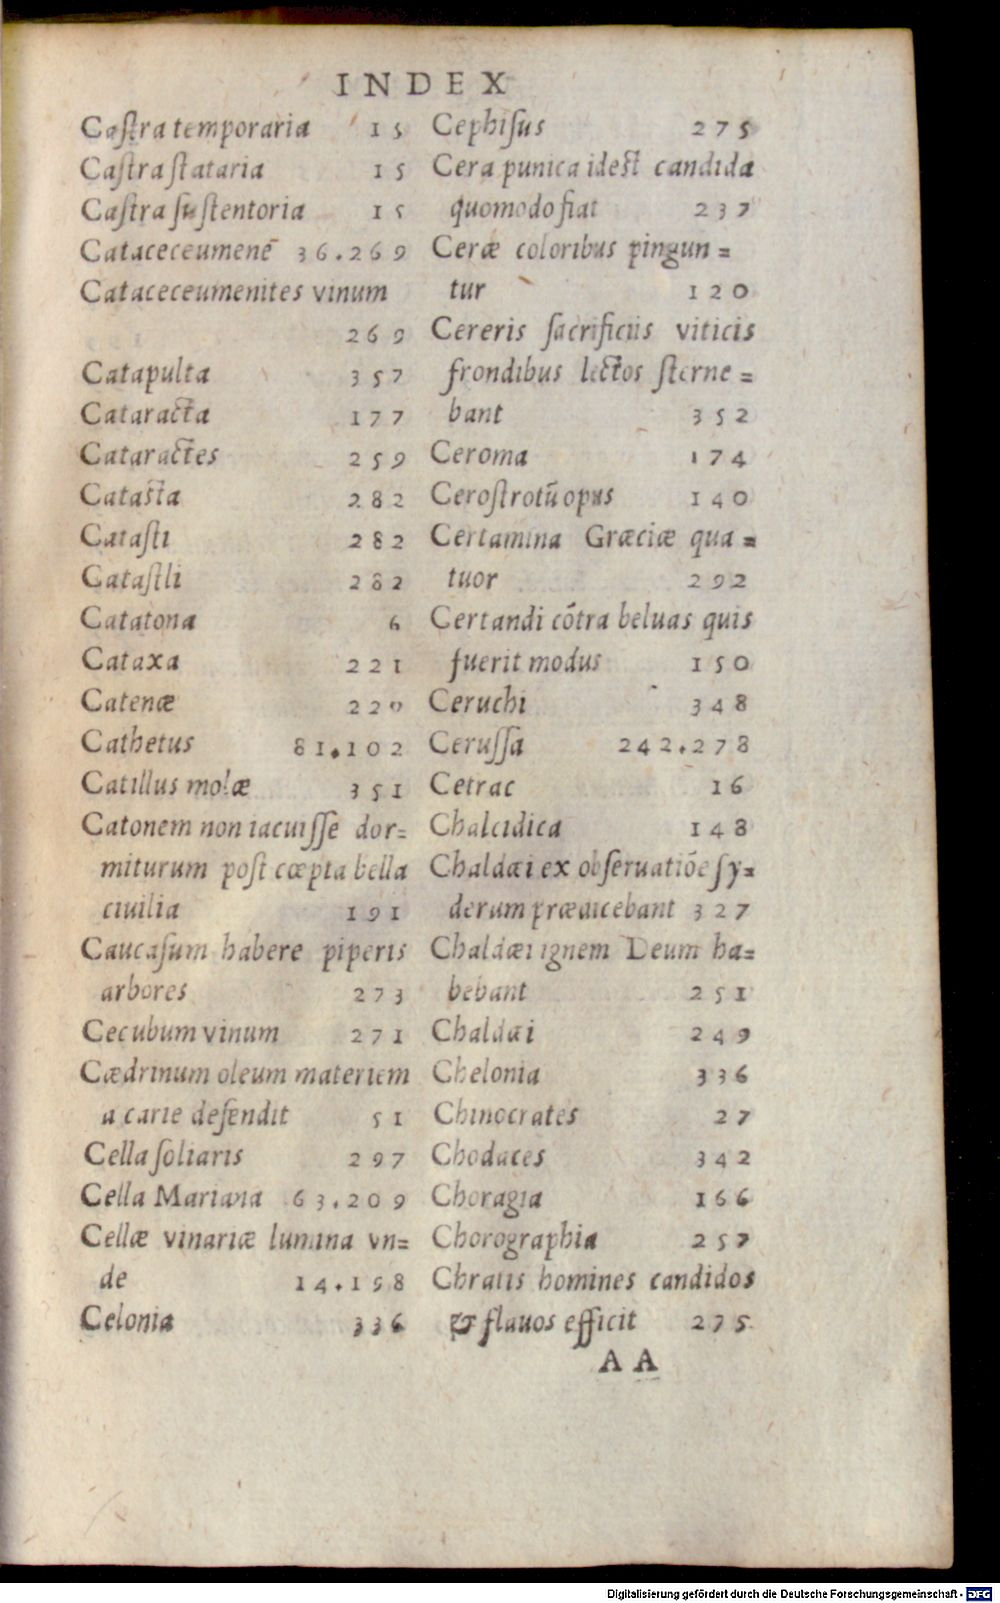 INDEX
Caſtra temporaria 15
Caſtra ſtataria 15
Caſtra ſuſtentoria 15
Cataceceumenē 36.269
Cataceceumenites vinum
269
Catapulta 357
Cataracta 177
Cataractes 259
Cataſta 282
Cataſti 282
Cataſtli 282
Catatona 6
Cataxa 221
Catenæ 220
Cathetus 81.102
Catillus molæ 351
Catonem non iacuiſſe dor=
miturum poſt cœpta bella
ciuilia 191
Caucaſum habere piperis
arbores 273
Cecubum vinum 271
Cædrinum oleum materiem
a carie defendit 51
Cella ſoliaris 297
Cella Mariana 63.209
Cellæ vinariæ lumina vn=
de 14.158
Celonia 336
Cephiſus 275
Cera punica ideſt candida
quomodo fiat 237
Ceræ coloribus pingun=
tur 120
Cereris ſacrificiis viticis
frondibus lectos ſterne=
bant 352
Ceroma 174
Ceroſtrotū opus 140
Certamina Græciæ qua=
tuor 292
Certandi cōtra beluas quis
fuerit modus 150
Ceruchi 348
Ceruſſa 242.278
Cetrac 16
Chalcidica 148
Chaldæi ex obſeruatiōe ſy=
derum prædicebant 327
Chaldæi ignem Deum ha=
bebant 251
Chaldæi 249
Chelonia 336
Chinocrates 27
Chodaces 342
Choragia 166
Chorographia 257
Chratis homines candidos
& flauos efficit 275
AA
Digitalisierung gefördert durch die Deutsche Forschungsgemeinschaft - DFG